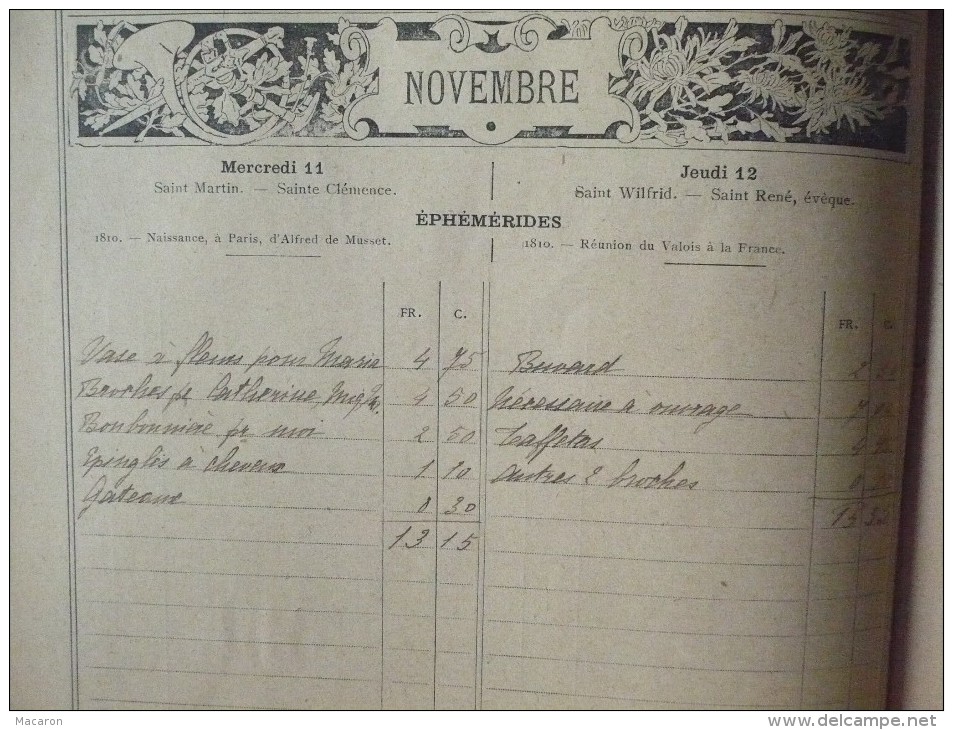 NOVEMBRE
Mercredi 11
Saint Martin. — Sainte Clémence.
Jeudi 12
Saint Wilfrid. — Saint René, évêque.
ÉPHÉMÉRIDES
1810. — Naissance, à Paris, d'Alfred de Musset.
1810. — Réunion du Valois à la France.
FR. C.
Vase à fleurs pour Marie 4 75
Broches pr Catherine, 4 50
Bonbonnière pr moi 2 50
Epingles à cheveux 1 10
Gâteaux 0 30
13 15
FR. C.
Buvard
Nécessaire à ouvrage
Taffetas 4
Autres 2 broches 0
Macaron
www.delcampe.net